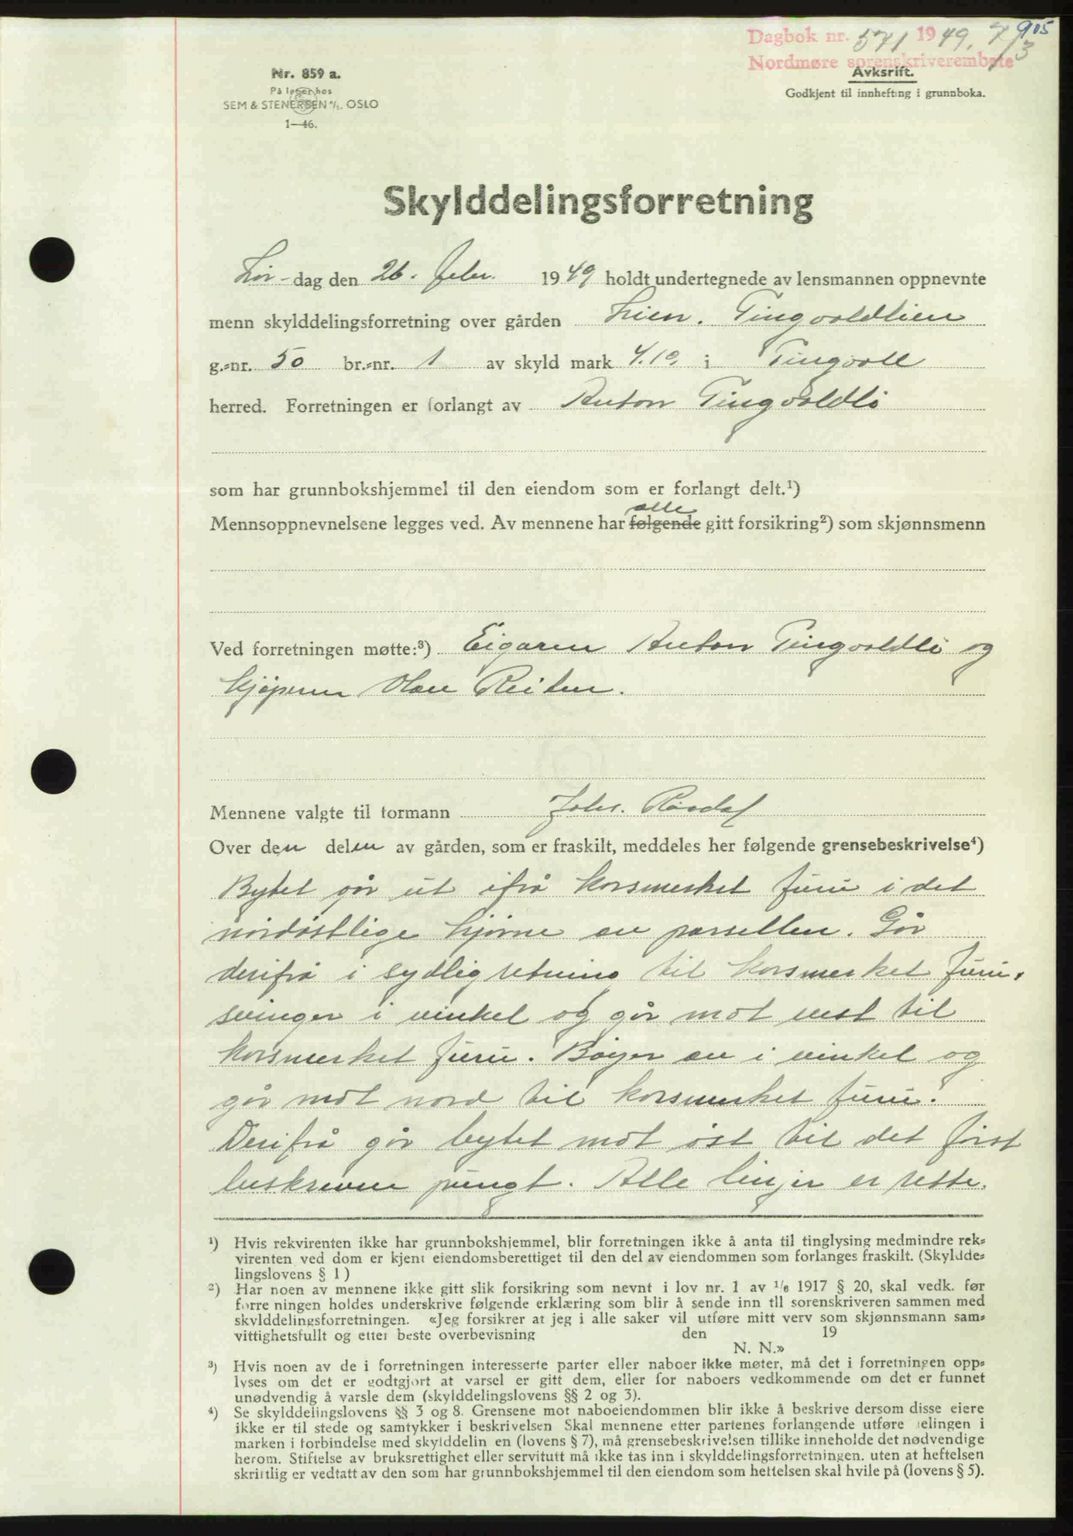 905
Dagbok nr. 571 1949, 7/3
Nordmøre sorenskriverembete
Nr. 859 a.
På lager hos
SEM & STENERSEN A/S. OSLO
1—46.
Avksrift.
Godkjent til innhefting i grunnboka.
Skylddelingsforretning
Lør-dag den 26. febr. 1949 holdt undertegnede av lensmannen oppnevnte
menn skylddelingsforretning over gården Lien. Tingvoldlien
g.-nr. 50 br.-nr. 1 av skyld mark 4.10, i Tingvoll
herred. Forretningen er forlangt av Anton Tingvoldli
som har grunnbokshjemmel til den eiendom som er forlangt delt.¹)
alle
Mennsoppnevnelsene legges ved. Av mennene har følgende gitt forsikring²) som skjønnsmenn
Ved forretningen møtte:³) Eigaren Anton Tingvoldli og
kjøperen Olav Reiten.
Mennene valgte til formann Johs. Røvdal
Over den delen av gården, som er fraskilt, meddeles her følgende grensebeskrivelse⁴)
Bytet går ut ifrå korsmerket furu i det
nordøstlige hjørne av parsellen. Går
derifrå i sydlig retning til korsmerket furu,
svinger i vinkel og går mot vest til
korsmerket furu. Bøyer av i vinkel og
går mot nord til korsmerket furu.
Derifrå går bytet mot øst til det først
beskrevne pungt. Alle linjer er rette.
¹) Hvis rekvirenten ikke har grunnbokshjemmel, blir forretningen ikke å anta til tinglysing medmindre rek-
virenten ved dom er kjent eiendomsberettiget til den del av eiendommen som forlanges fraskilt. (Skyldde-
lingslovens § 1)
²) Har noen av mennene ikke gitt slik forsikring som nevnt i lov nr. 1 av 1/6 1917 § 20, skal vedk. før
forretningen holdes underskrive følgende erklæring som blir å sende inn til sorenskriveren sammen med
skylddelingsforretningen. «Jeg forsikrer at jeg i alle saker vil utføre mitt verv som skjønnsmann sam-
vittighetsfullt og etter beste overbevisning den 19
N. N.»
³) Hvis noen av de i forretningen interesserte parter eller naboer ikke møter, må det i forretningen opp-
lyses om det er godtgjort at varsel er gitt dem, eller for naboers vedkommende om det er funnet
unødvendig å varsle dem (skylddelingslovens §§ 2 og 3).
⁴) Se skylddelingslovens §§ 3 og 8. Grensene mot naboeiendommen blir ikke å beskrive dersom disse eiere
ikke er til stede og samtykker i beskrivelsen Skal mennene etter partenes forlangende utføre delingen i
marken i forbindelse med skylddelingen (lovens § 7), må grensebeskrivelsen tillike inneholde det nødvendige
herom. Stiftelse av bruksrettighet eller servitutt må ikke tas inn i skylddelingsforretningen. uten at heftelsen
skriftlig er vedtatt av den som har grunnbokshjemmel til den eiendom som heftelsen skal hvile på (lovens § 5).